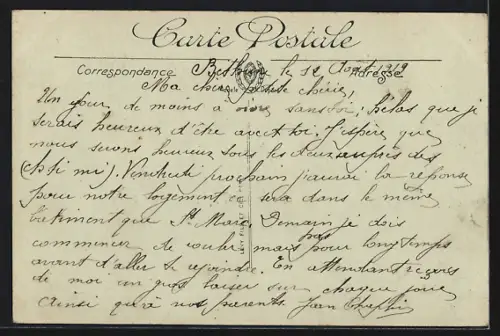 Carte Postale
Correspondance Adresse
Béthune le 12 Août 1919
Ma chère petite chérie,
Un jour de moins a vivre sans toi; hélas que je
serais heureux d'être avec toi. J'espère que
nous serons heureux tous les deux auprès des
(chti mi). Vendredi prochain j'aurai la réponse
pour notre logement ce sera dans le même
bâtiment que St Marc. Demain je dois
commencer de mais pas pour longtemps
avant d'aller te rejoindre. En attendant reçois
de moi un gros baiser sur chaque joue
ainsi qu'à nos parents. Jean